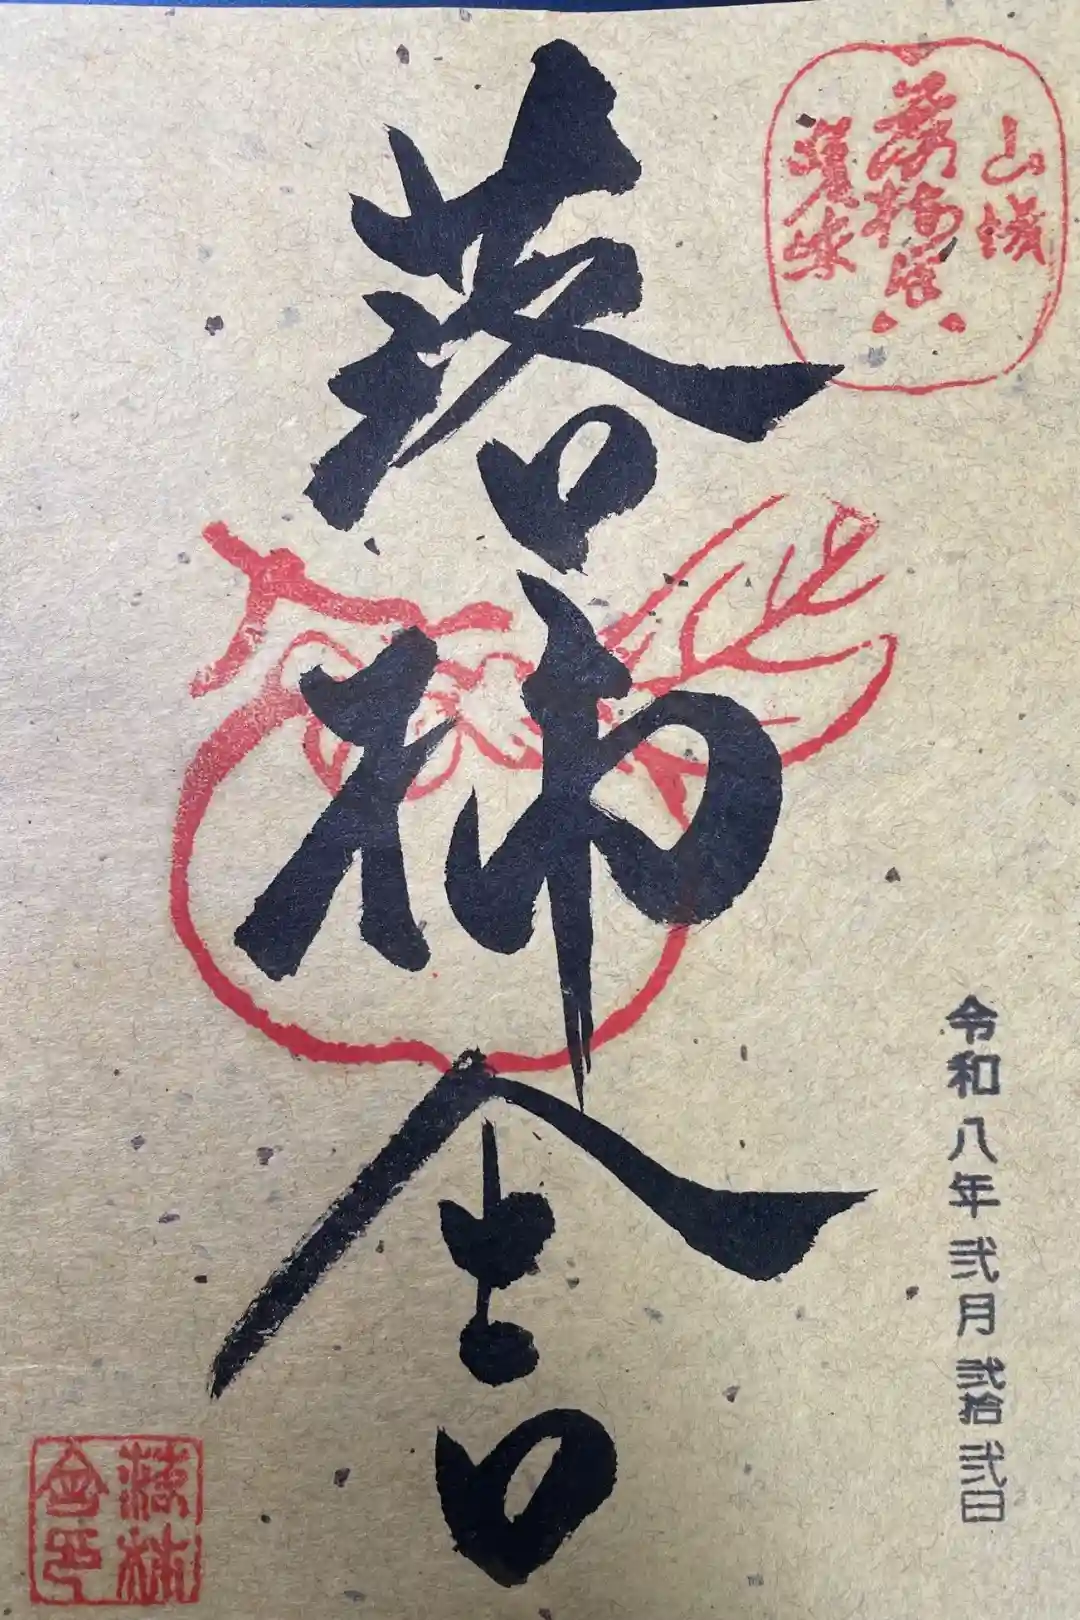 山城
令和八年弐月弐拾弐日
落柿舎
落柿
舎印